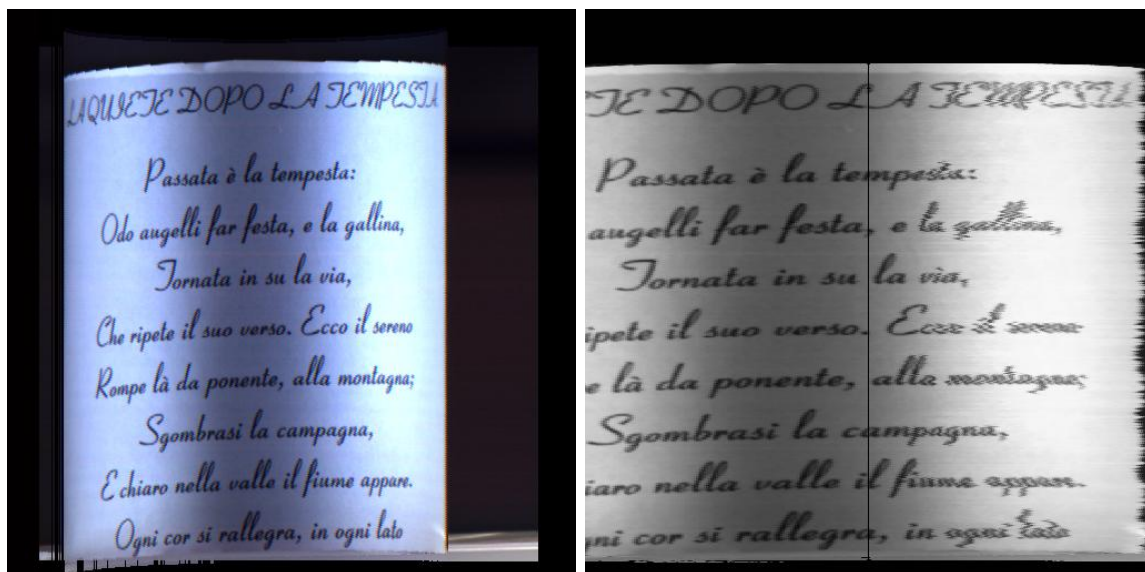 LA QUIETE DOPO LA TEMPESTA
Passata è la tempesta:
Odo augelli far festa, e la gallina,
Tornata in su la via,
Che ripete il suo verso. Ecco il sereno
Rompe là da ponente, alla montagna;
Sgombrasi la campagna,
E chiaro nella valle il fiume appare.
Ogni cor si rallegra, in ogni lato
TE DOPO LA TEMPESTA
Passata è la tempesta:
augelli far festa, e la gallina,
Tornata in su la via,
ipete il suo verso. Ecco il sereno
e là da ponente, alla montagna;
Sgombrasi la campagna,
iaro nella valle il fiume appare.
ni cor si rallegra, in ogni lato